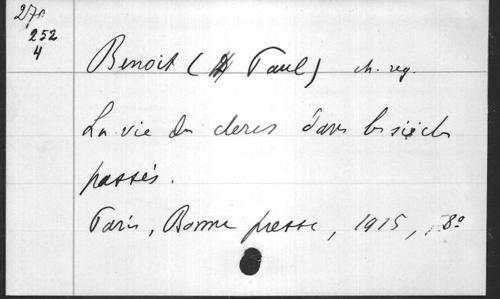 27
252
4
Benoit ( Paul) ch. reg.
La vie des clercs dans les siècles
passés.
Paris, Bonne presse, 1915, 8º